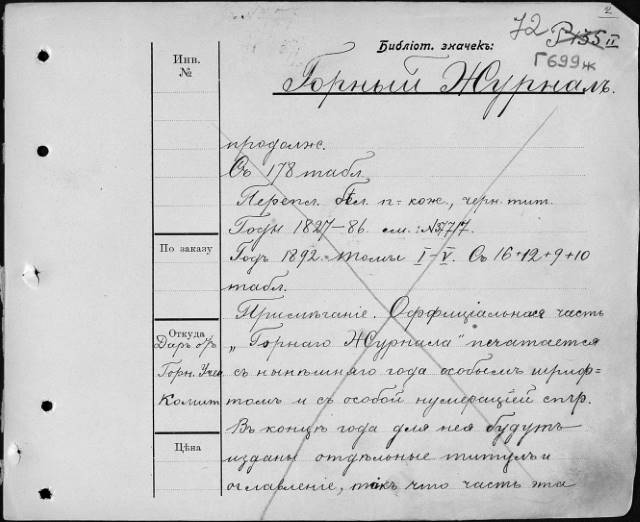 2
72
P 135 II
Г699ж
Библіот. значекъ:
Горный Журналъ.
Инв.
№
продолж.
Съ 178 табл.
Перепл. п-кож., черн. тит.
Годы 1827–86. см.: №5777.
По заказу
Годъ 1892. томы I–V. Съ 16+12+9+10
табл.
Примѣчаніе. Оффиціальная часть
Откуда
Даръ отъ
Горн. Учен
Комит
„Горнаго Журнала" печатается
съ нынѣшняго года особымъ шриф-
томъ и съ особой нумераціей стр.
Въ концѣ года для нея будутъ
Цѣна
изданы отдѣльные титулъ и
оглавленіе, такъ что часть эта